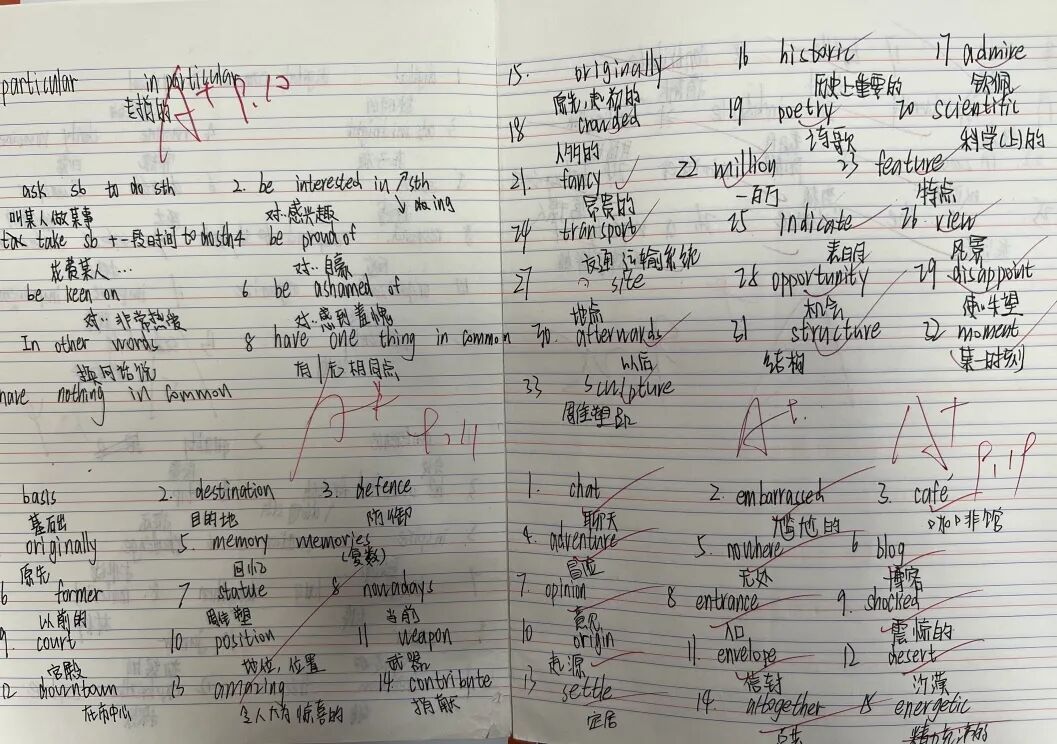 particular in particular
A+ P.10
ask sb to do sth 2. be interested in sth
doing
叫某人做某事 对··感兴趣
take sb +一段时间 to do sth 4 be proud of
花费某人… 对··自豪
be keen on 6 be ashamed of
对··非常热爱 对··感到羞愧
In other words 8 have one thing in common
换句话说 有1点相同点
have nothing in common
A+ P.11
basis 2. destination 3. defence
基础 目的地 防御
originally 5. memory memories
原先 回忆 (复数)
6 former 7 statue 8 nowadays
以前的 雕塑 当前
9. court 10 position 11 weapon
宫殿 地位, 位置 武器
12 downtown 13 amazing 14 contribute
在市中心 令人大为惊喜的 捐献
15. originally 16 historic 17 admire
原先,起初的 历史上重要的 钦佩
18 crowded 19 poetry 20 scientific
人多的 诗歌 科学(上)的
21. fancy 22 million 23 feature
昂贵的 一百万 特点
24 transport 25 indicate 26 view
交通运输系统 表明 风景
27 site 28 opportunity 29 disappoint
地点 机会 使失望
30. afterwards 31 structure 32 moment
以后 结构 某一时刻
33 sculpture
雕塑品
A+ A+ P.19
1. chat 2. embarrassed 3. café
聊天 尴尬的 咖啡馆
4. adventure 5. nowhere 6 blog
冒险 无处 博客
7. opinion 8 entrance 9. shocked
意见 入口 震惊的
10 origin 11. envelope 12 desert
起源 信封 沙漠
13 settle 14. altogether 15 energetic
定居 精力充沛的